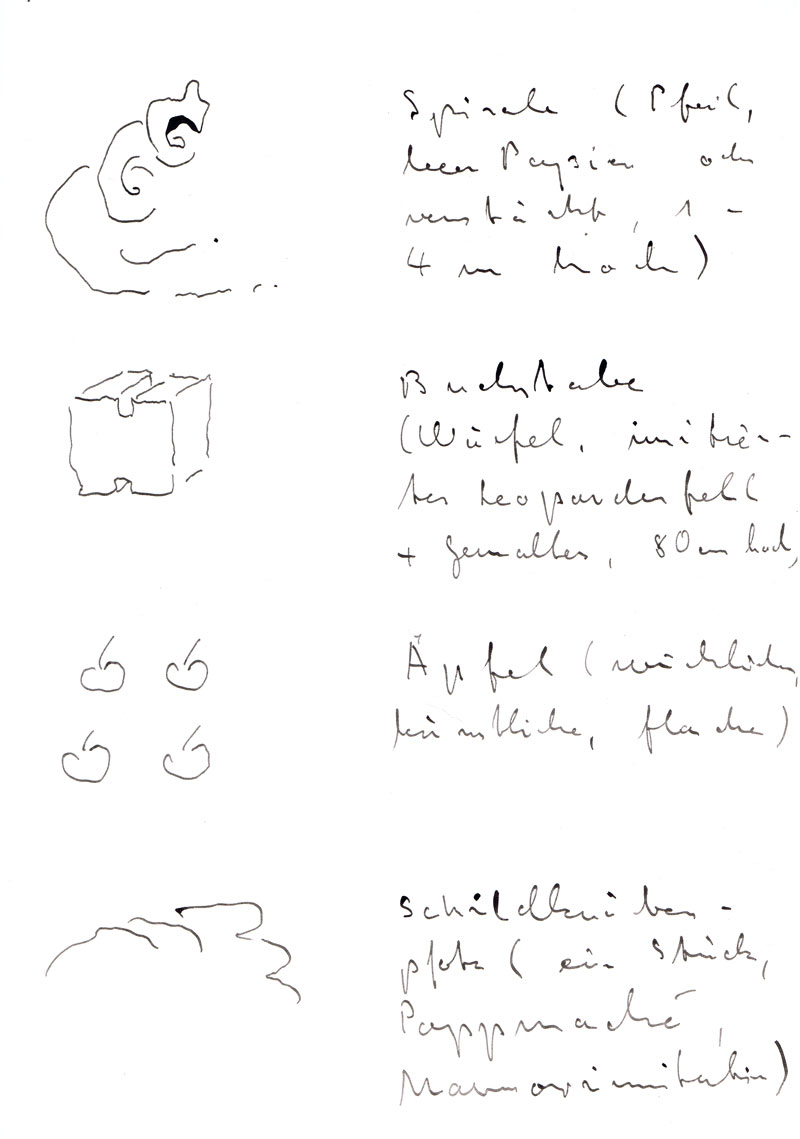 Spirale (Pfeil,
Papier oder
verstärkt, 1 -
4 m hoch)
Buchstabe
(Würfel, imitier-
tes Leopardenfell
+ gemaltes, 80 cm hoch,
Äpfel (wirkliche,
künstliche, flache)
Schildkröten-
pfote (ein Stück,
Pappmaché,
Marmorimitation)